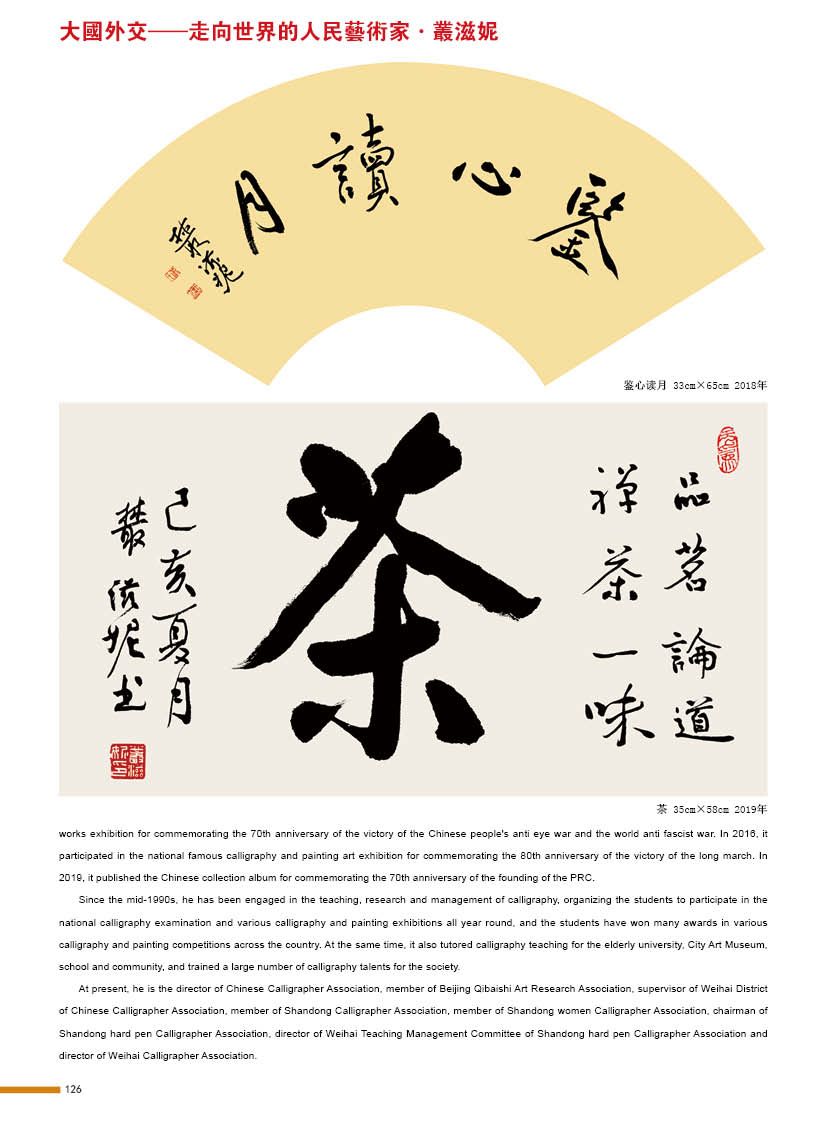 大國外交——走向世界的人民藝術家·叢滋妮
鑒心讀月
叢滋妮
鉴心读月 33cm×65cm 2018年
品茗論道
禅茶一味
茶
己亥夏月
叢滋妮书
茶 35cm×58cm 2019年
works exhibition for commemorating the 70th anniversary of the victory of the Chinese people's anti eye war and the world anti fascist war. In 2016, it
participated in the national famous calligraphy and painting art exhibition for commemorating the 80th anniversary of the victory of the long march. In
2019, it published the Chinese collection album for commemorating the 70th anniversary of the founding of the PRC.
Since the mid-1990s, he has been engaged in the teaching, research and management of calligraphy, organizing the students to participate in the
national calligraphy examination and various calligraphy and painting exhibitions all year round, and the students have won many awards in various
calligraphy and painting competitions across the country. At the same time, it also tutored calligraphy teaching for the elderly university, City Art Museum,
school and community, and trained a large number of calligraphy talents for the society.
At present, he is the director of Chinese Calligrapher Association, member of Beijing Qibaishi Art Research Association, supervisor of Weihai District
of Chinese Calligrapher Association, member of Shandong Calligrapher Association, member of Shandong women Calligrapher Association, chairman of
Shandong hard pen Calligrapher Association, director of Weihai Teaching Management Committee of Shandong hard pen Calligrapher Association and
director of Weihai Calligrapher Association.
126